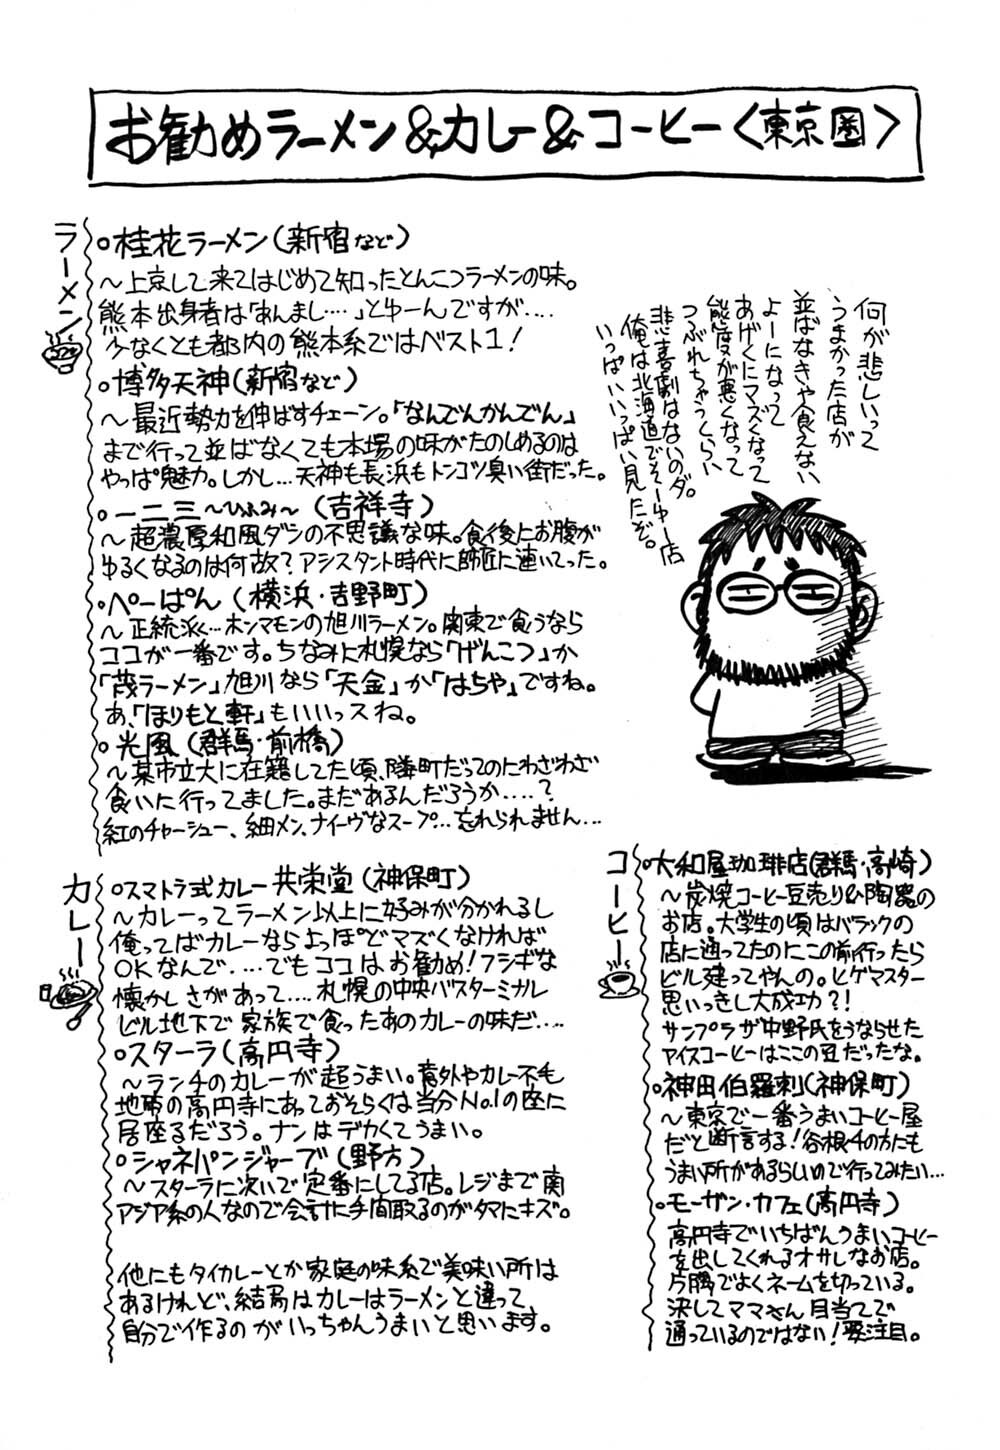 お勧めラーメン&カレー&コーヒー〈東京圏〉
ラーメン
○桂花ラーメン(新宿など)
～上京して来てはじめて知ったとんこつラーメンの味。
熊本出身者は「あんまし‥‥」とゆーんですが‥‥
少なくとも都内の熊本系ではベスト1!
○博多天神(新宿など)
～最近勢力を伸ばすチェーン。「なんでんかんでん」
まで行って並ばなくても本場の味がたのしめるのは
やっぱ魅力。しかし…天神も長浜もトンコツ臭い街だった。
○一二三～ひふみ～(吉祥寺)
～超濃厚和風ダシの不思議な味。食後にお腹が
ゆるくなるのは何故?アシスタント時代に師匠に連いてった。
○ぺーぱん(横浜・吉野町)
～正統派く…ホンマモンの旭川ラーメン。関東で食うなら
ココが一番です。ちなみに札幌なら「げんこつ」か
「茂ラーメン」旭川なら「天金」か「はちや」ですね。
あ、「ほりもと軒」もいいっスね。
○光風(群馬・前橋)
～某市立大に在籍してた頃、隣町だってのにわざわざ
食いに行ってました。まだあるんだろうか‥‥?
紅のチャーシュー、細メン、ナイーヴなスープ…忘れられません…
何が悲しいって
うまかった店が
並ばなきゃ食えない
よーになって
あげくにマズくなって
態度が悪くなって
つぶれちゃうくらい
悲喜劇はないのダ。
俺は北海道でそーゆー店
いっぱいいっぱい見たぞ。
カレー
○スマトラ式カレー共栄堂(神保町)
～カレーってラーメン以上に好みが分かれるし
俺ってばカレーならよっぽどマズくなければ
OKなんで‥‥でもココはお勧め!フシギな
懐かしさがあって‥‥札幌の中央バスターミナル
ビル地下で家族で食ったあのカレーの味だ‥‥
○スターラ(高円寺)
～ランチのカレーが超うまい。意外やカレー不毛
地帯の高円寺にあっておそらくは当分No.1の座に
居座るだろう。ナンはデカくてうまい。
○シャネパンジャーブ(野方)
～スターラに次いで定番にしてる店。レジまで南
アジア系の人なので会計に手間取るのがタマにキズ。
他にもタイカレーとか家庭の味系で美味い所は
あるけれど、結局はカレーはラーメンと違って
自分で作るのがいっちゃんうまいと思います。
コーヒー
○大和屋珈琲店(群馬・高崎)
～炭焼コーヒー豆売り&陶器の
お店。大学生の頃はバラックの
店に通ってたのにこの前行ったら
ビル建ってやんの。ヒゲマスター
思いっきし大成功?!
サンプラザ中野氏をうならせた
アイスコーヒーはここの豆だったな。
○神田伯羅剌(神保町)
～東京で一番うまいコーヒー屋
だと断言する!谷根千の方にも
うまい所があるらしいので行ってみたい…
○モーザン・カフェ(高円寺)
高円寺でいちばんうまいコーヒー
を出してくれるオサレなお店。
片隅でよくネームを切っている。
決してママさん目当てで
通っているのではない!要注目。